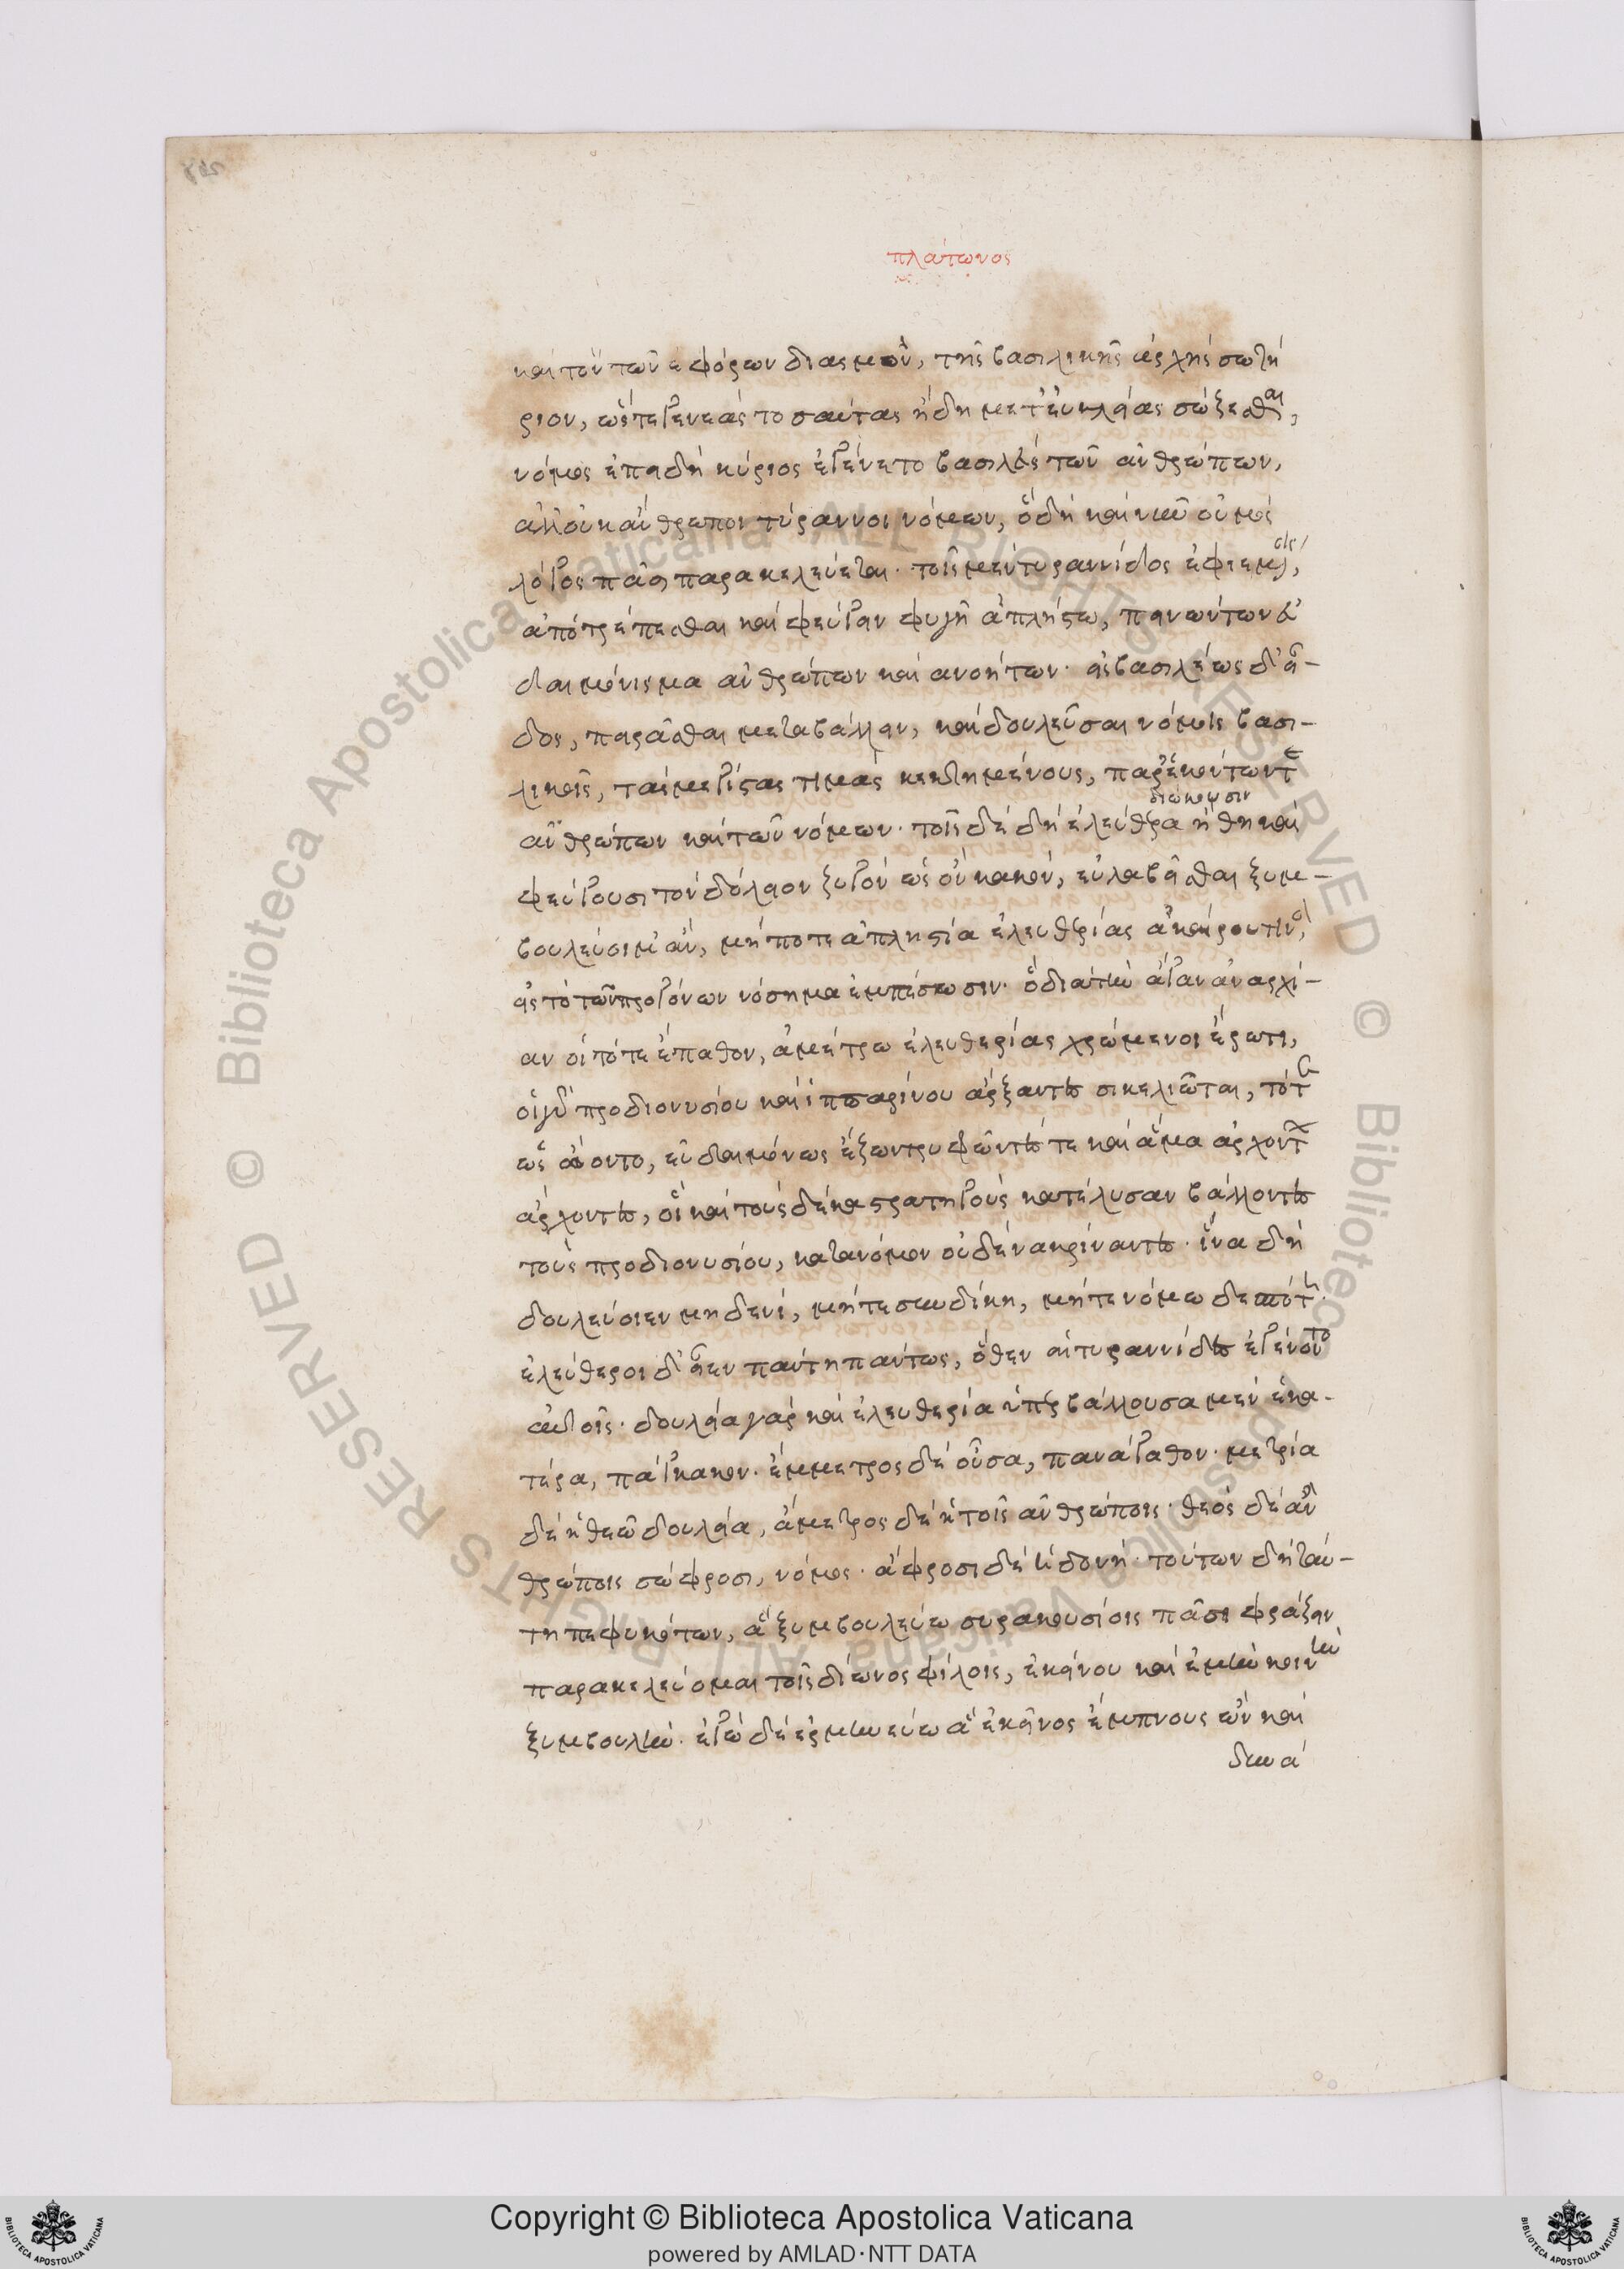 πλάτωνος
καὶ τὸν τῶν ἐφόρων δεσμὸν, τῆς βασιλικῆς ἀρχῆς σωτή
ριον, ὥστε γενεὰς τοσαύτας ἤδη μετ' εὐκλείας σώζεσθαι,
νόμος ἐπειδὴ κύριος ἐγένετο βασιλεὺς τῶν ἀνθρώπων,
ἀλλ' οὐκ ἄνθρωποι τύραννοι νόμων, ὃ δὴ καὶ νῦν οὑμὸς
λόγος πᾶσι παρακελεύεται· τοῖς μὲν τυραννίδος ἐφιεμένοις,
ἀποτρέπεσθαι καὶ φεύγειν φυγῇ ἀπλήστως, πεινώντων εὐ
δαιμόνισμα ἀνθρώπων καὶ ἀνοήτων· εἰς βασιλέως δ' εἶ-
δος, πειρᾶσθαι μεταβάλλειν, καὶ δουλεῦσαι νόμοις βασι-
λικοῖς, τὰς μεγίστας τιμὰς κεκτημένους, παρ' ἑκόντων τε
ἀνθρώπων καὶ τῶν νόμων· τοῖς δὲ δὴ ἐλεύθερα ἤθη καὶ
φεύγουσι τὸν δούλειον ζυγὸν ὡς ὂν κακόν, εὐλαβεῖσθαι ξυμ-
βουλεύσιμ' ἄν, μήποτε ἀπληστία ἐλευθερίας ἀκαίρου τινὸς,
εἰς τὸ τῶν προγόνων νόσημα ἐμπέσωσιν· ὃ διὰ τὴν ἄγαν ἀναρχί-
αν οἱ τότε ἔπαθον, ἀμέτρω ἐλευθερίας χρώμενοι ἔρωτι,
οἱ γὰρ πρὸ διονυσίου καὶ ἱππαρίνου ἄρξαντες σικελιῶται, τότε
ὡς ᾤοντο, εὐδαιμόνως ἔζων τρυφῶντές τε καὶ ἅμα ἀρχόντων
ἄρχοντες, οἳ καὶ τοὺς δέκα στρατηγοὺς κατέλυσαν βάλλοντες
τοὺς πρὸ διονυσίου, κατὰ νόμον οὐδένα κρίναντες· ἵνα δὴ
δουλεύοιεν μηδενὶ, μήτε σὺν δίκη, μήτε νόμω δεσπότη·
ἐλεύθεροι δ' εἶεν πάντη πάντως, ὅθεν αἱ τυραννίδες ἐγένοντο
αὐτοῖς· δουλεία γὰρ καὶ ἐλευθερία ὑπερβάλλουσα μὲν ἑκα-
τέρα, πάγκακον· ἔμμετρος δὲ οὖσα, πανάγαθον· μετρία
δὲ ἡ θεῶ δουλεία, ἄμετρος δὲ ἡ τοῖς ἀνθρώποις· θεὸς δὲ ἀν
θρώποις σώφροσι, νόμος· ἄφροσι δὲ ἡδονή· τούτων δὴ ταύ-
τη πεφυκότων, ἃ ξυμβουλεύω συρακουσίοις πᾶσι φράζειν
παρακελεύομαι τοῖς δίωνος φίλοις, ἐκείνου καὶ ἐμὴν κοινὴν
ξυμβουλήν· ἐγὼ δὲ ἑρμηνεύω ἃ ἐκεῖνος ἔμπνους ὢν καὶ